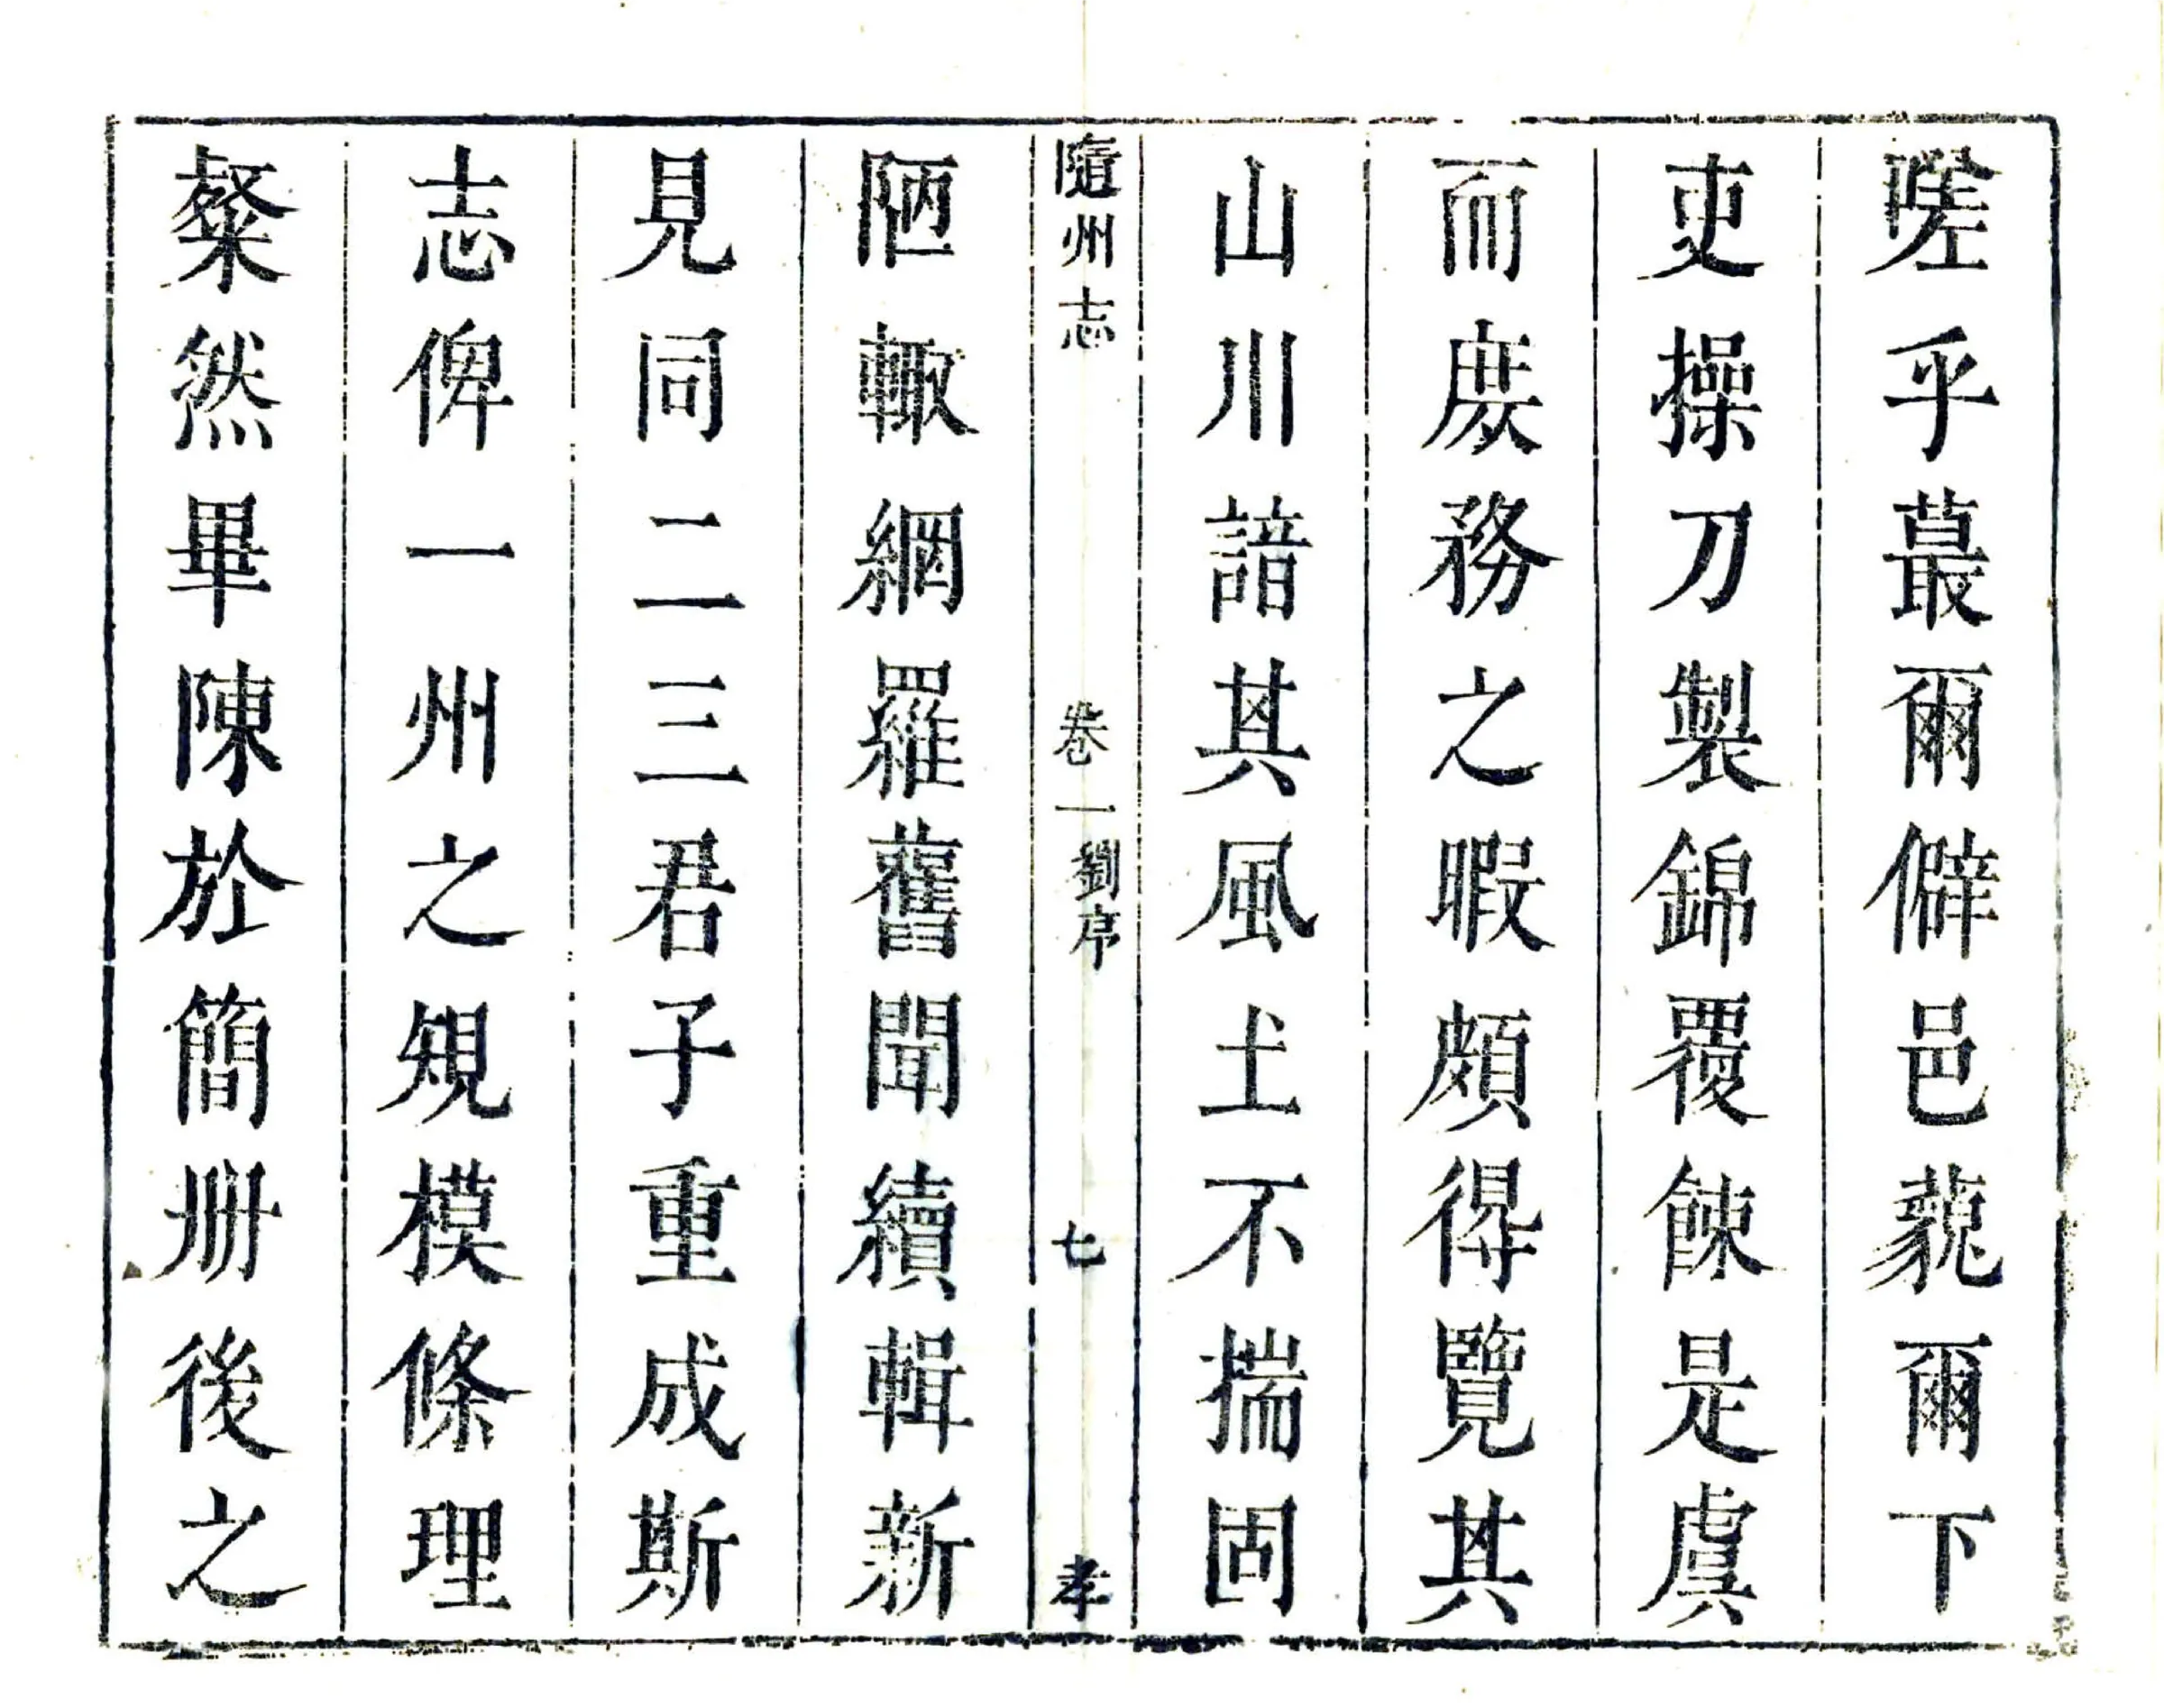 嗟乎蕞爾僻邑藐爾下
吏操刀製錦覆餗是虞
而庶務之暇頗得覽其
山川諳其風土不揣固
隨州志 卷一 劉序 七 孝
陋輙網羅舊聞續輯新
見同二三君子重成斯
志俾一州之規模條理
粲然畢陳於簡冊後之